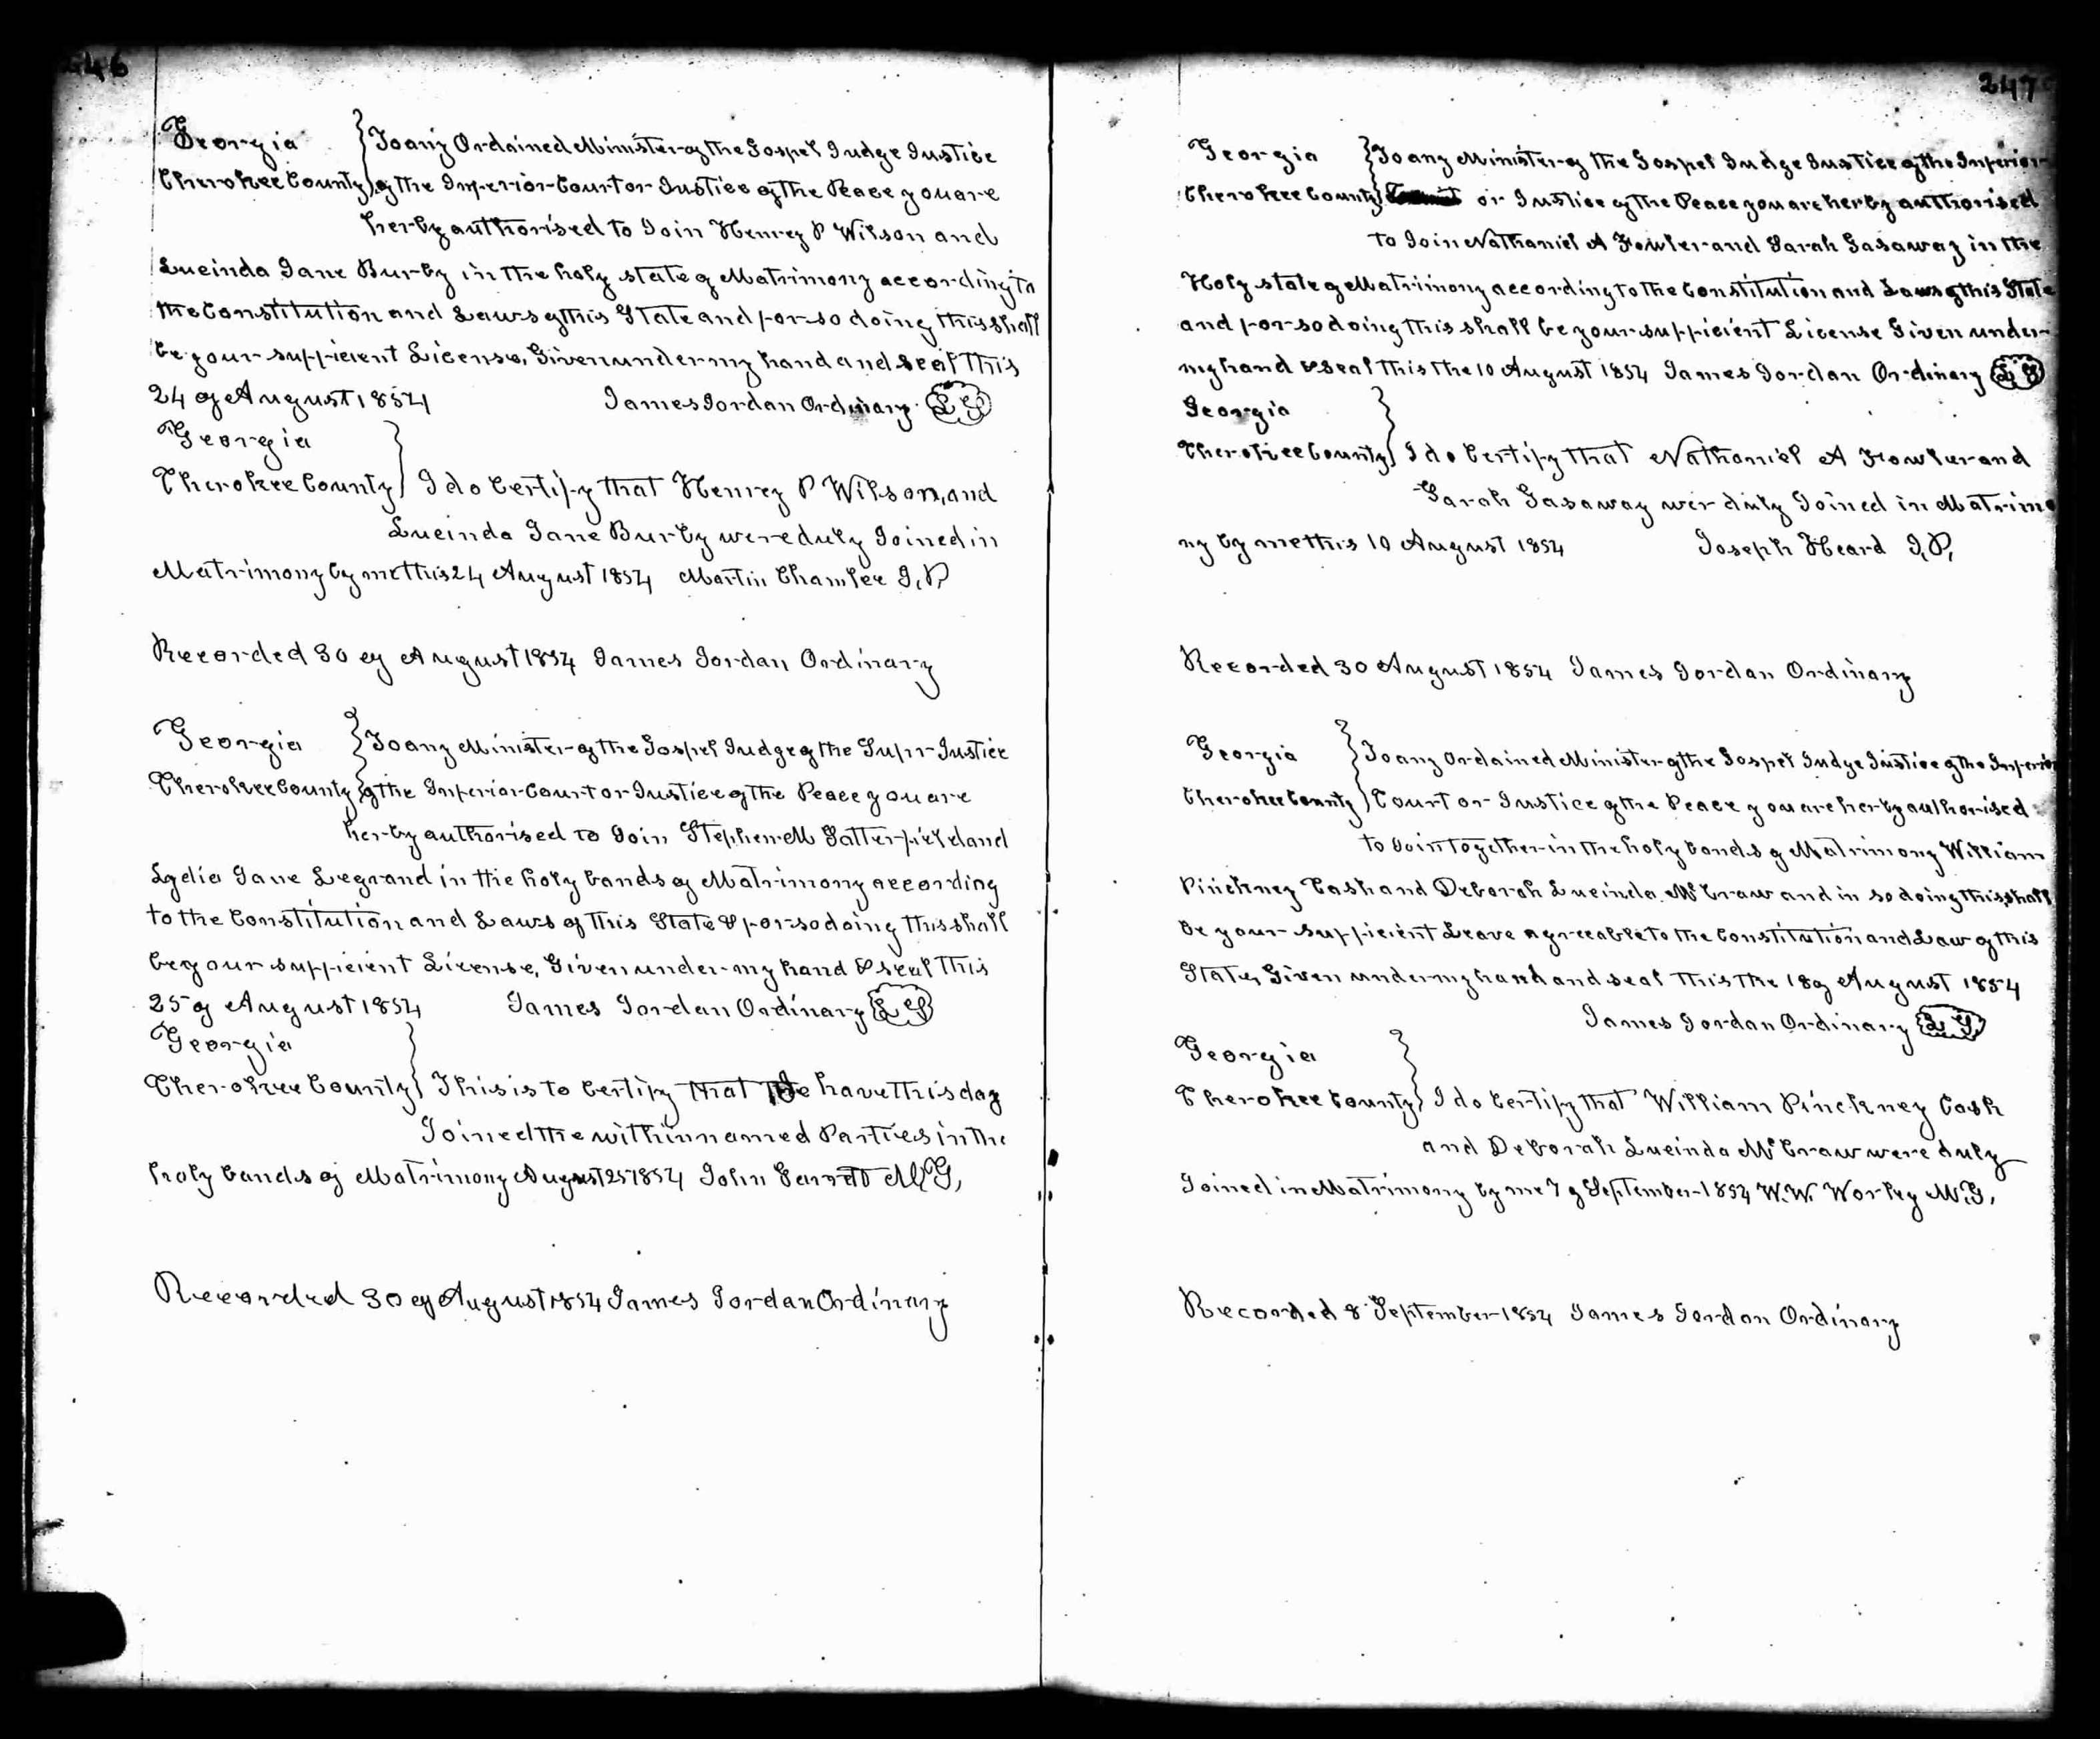 246
Georgia } To any Ordained Minister of the Gospel Judge Justice
Cherokee County } of the Inferior Court or Justice of the Peace you are
herby authorised to Join Henrey P Wilson and
Lucinda Jane Burby in the holy state of Matrimony according to
the Constitution and Laws of this State and for so doing this shall
be your sufficient License, Given under my hand and seal this
24 of August 1854 James Jordan Ordinary L S
Georgia }
Cherokee County } I do Certify that Henrey P Wilson, and
Lucinda Jane Burby were duly Joined in
Matrimony by me this 24 August 1854 Martin Chamlee J, P,
Recorded 30 of August 1854 James Jordan Ordinary
Georgia } To any Minister of the Gospel Judge of the Supr Justice
Cherokee County } of the Inferior Court or Justice of the Peace you are
herby authorised to Join Stephen M Satterfield and
Lydia Jane Legrand in the holy bands of Matrimony according
to the Constitution and Laws of this State & for so doing this shall
be your sufficient License, Given under my hand & seal this
25 of August 1854 James Jordan Ordinary L S
Georgia }
Cherokee County } This is to Certify that have this day
Joined the within named Parties in the
holy bands of Matrimony August 25 1854 John Garrett M, G,
Recorded 30 of August 1854 James Jordan Ordinary
247
Georgia } To any Minister of the Gospel Judge Justice of the Inferior
Cherokee County } or Justice of the Peace you are herby authorised
to Join Nathaniel A Fowler and Sarah Gasaway in the
Holy state of Matrimony according to the Constitution and Laws of this State
and for so doing this shall be your sufficient License Given under
my hand & seal this the 10 August 1854 James Jordan Ordinary L S
Georgia }
Cherokee County } I do Certify that Nathaniel A Fowler and
Sarah Gasaway wer duly Joined in Matrimo
ny by me this 10 August 1854 Joseph Heard J, P,
Recorded 30 August 1854 James Jordan Ordinary
Georgia } To any Ordained Minister of the Gospel Judge Justice of the Inferior
Cherokee County } Court or Justice of the Peace you are herby authorised
to Join together in the holy bonds of Matrimony William
Pinckney Cash and Deborah Lucinda McCraw and in so doing this shall
be your sufficient Leave agreeable to the Constitution and Law of this
State, Given under my hand and seal this the 18 of August 1854
James Jordan Ordinary L S,
Georgia }
Cherokee County } I do Certify that William Pinckney Cash
and Deborah Lucinda McCraw were duly
Joined in Matrimony by me 7 of September 1854 W. W. Worley M. G,
Recorded 8 September 1854 James Jordan Ordinary